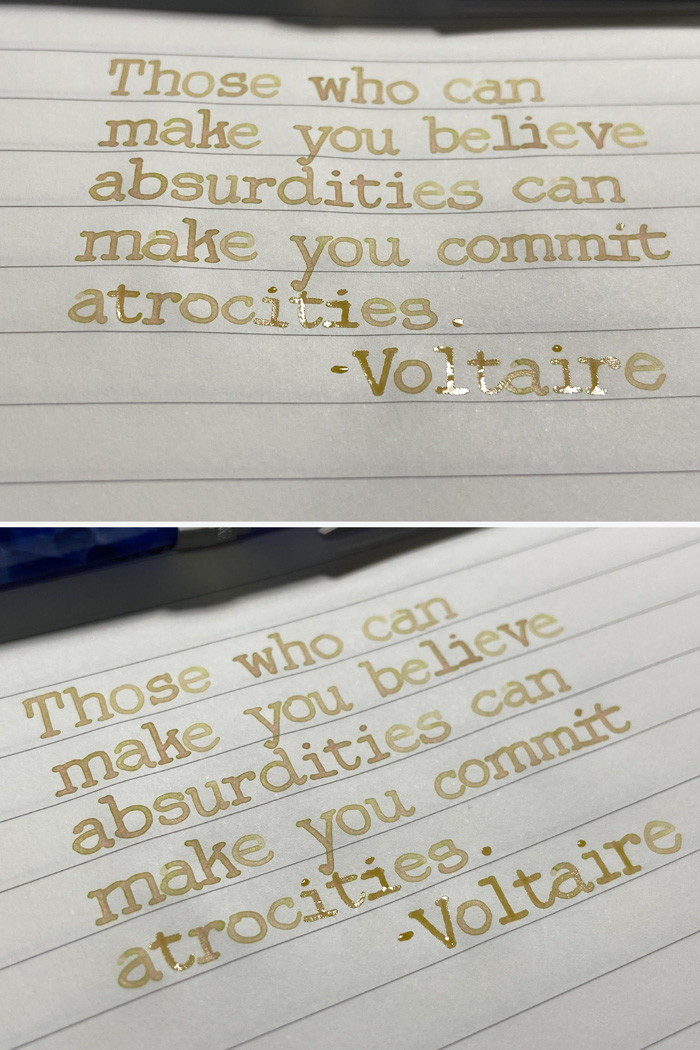 Those who can
make you believe
absurdities can
make you commit
atrocities.
-Voltaire
Those who can
make you believe
absurdities can
make you commit
atrocities.
-Voltaire